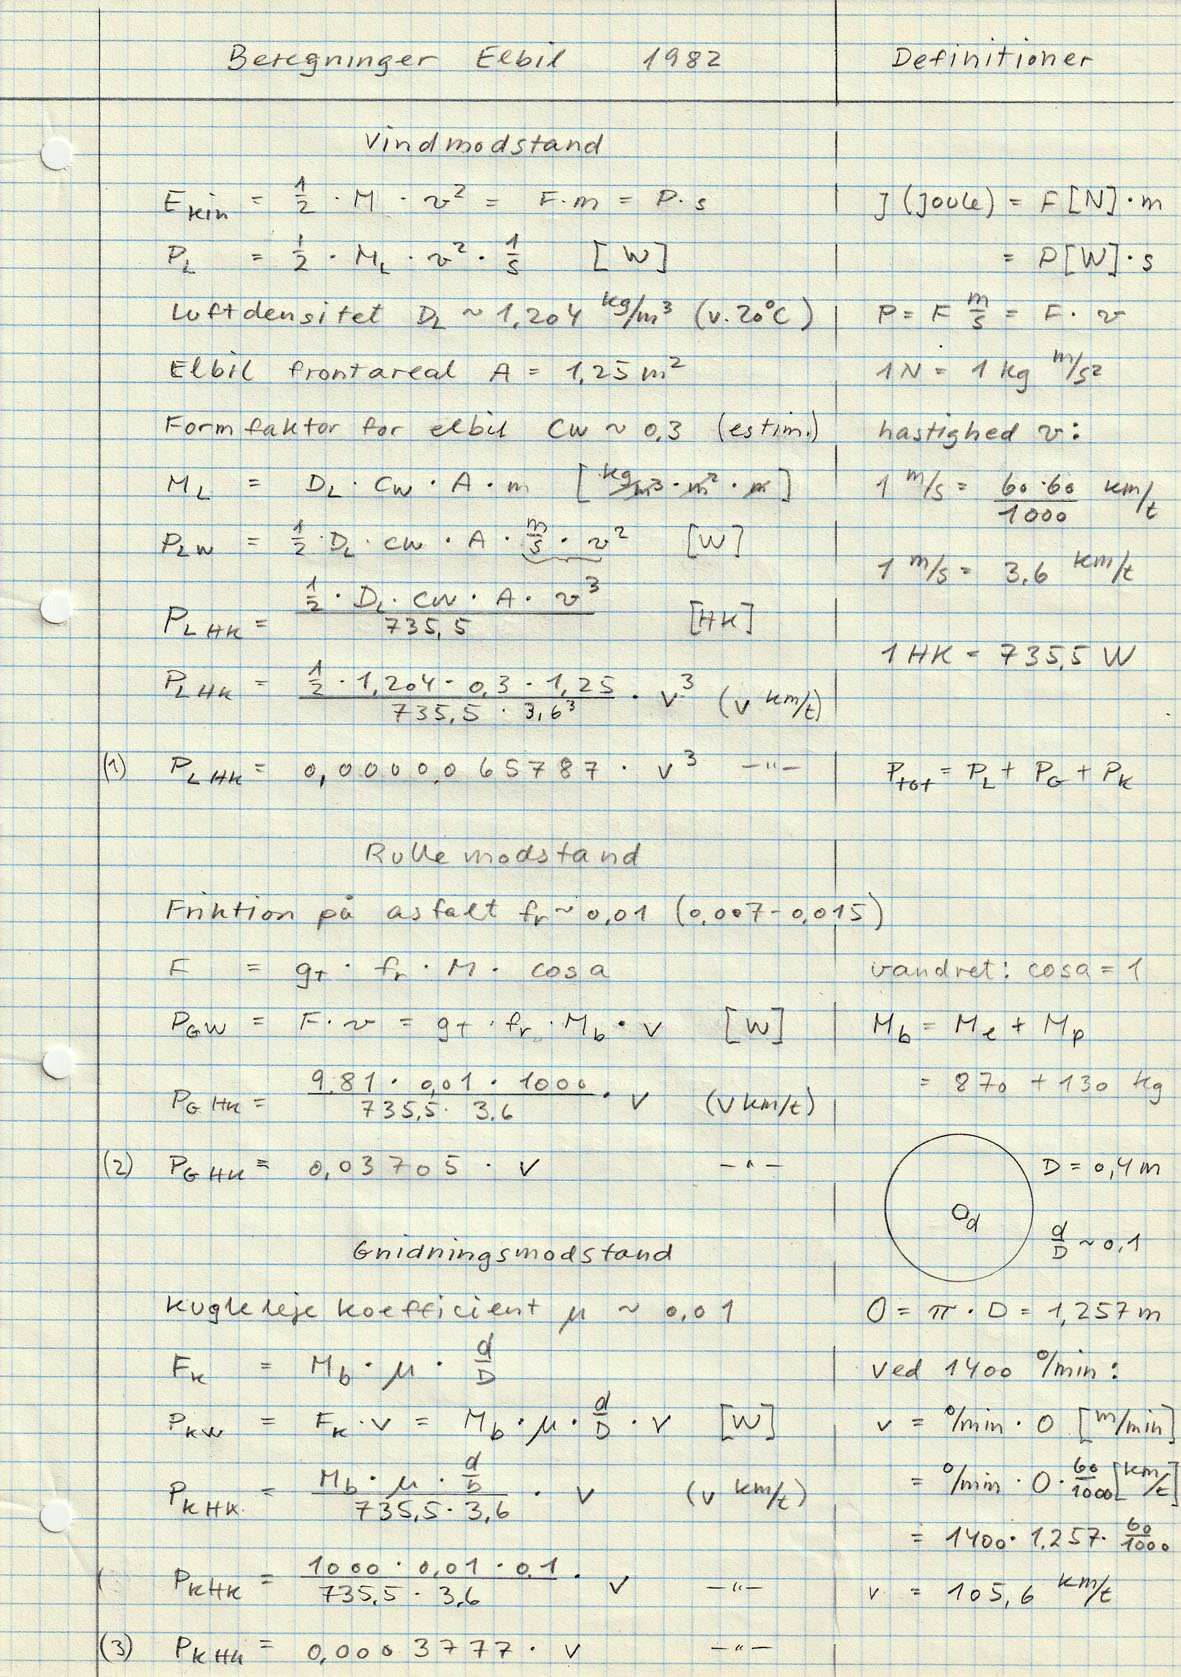 Beregninger Elbil 1982
Definitioner
Vindmodstand
E_kin = 1/2 · M · v² = F·m = P·s
J (Joule) = F[N]·m
P_L = 1/2 · M_L · v² · 1/s [W]
= P[W]·s
Luftdensitet D_L ~ 1,204 kg/m³ (v. 20°C)
P = F m/s = F · v
Elbil frontareal A = 1,25 m²
1 N = 1 kg m/s²
Formfaktor for elbil CW ~ 0,3 (estim.)
hastighed v:
M_L = D_L · CW · A · m [kg/m³ · m² · m]
1 m/s = 60·60/1000 km/t
P_LW = 1/2 · D_L · CW · A · m/s · v² [W]
1 m/s = 3,6 km/t
P_LHK = 1/2 · D_L · CW · A · v³ / 735,5 [HK]
1 HK = 735,5 W
P_LHK = 1/2 · 1,204 · 0,3 · 1,25 / 735,5 · 3,6³ · v³ (v km/t)
(1) P_LHK = 0,0000065787 · v³ —"—
P_tot = P_L + P_G + P_K
Rullemodstand
Friktion på asfalt fr ~ 0,01 (0,007-0,015)
F = g_T · fr · M · cos a
vandret: cos a = 1
P_GW = F · v = g_T · fr · M_b · v [W]
M_b = M_e + M_p
= 870 + 130 kg
P_GHK = 9,81 · 0,01 · 1000 / 735,5 · 3,6 · v (v km/t)
(2) P_GHK = 0,03705 · v —"—
D = 0,4 m
d
d/D ~ 0,1
Gnidningsmodstand
Kugleleje koefficient μ ~ 0,01
O = π · D = 1,257 m
F_K = M_b · μ · d/D
ved 1400 o/min:
P_KW = F_K · v = M_b · μ · d/D · v [W]
v = o/min · O [m/min]
P_KHK = M_b · μ · d/D / 735,5 · 3,6 · v (v km/t)
= o/min · O · 60/1000 [km/t]
= 1400 · 1,257 · 60/1000
P_KHK = 1000 · 0,01 · 0,1 / 735,5 · 3,6 · v —"—
v = 105,6 km/t
(3) P_KHK = 0,0003777 · v —"—